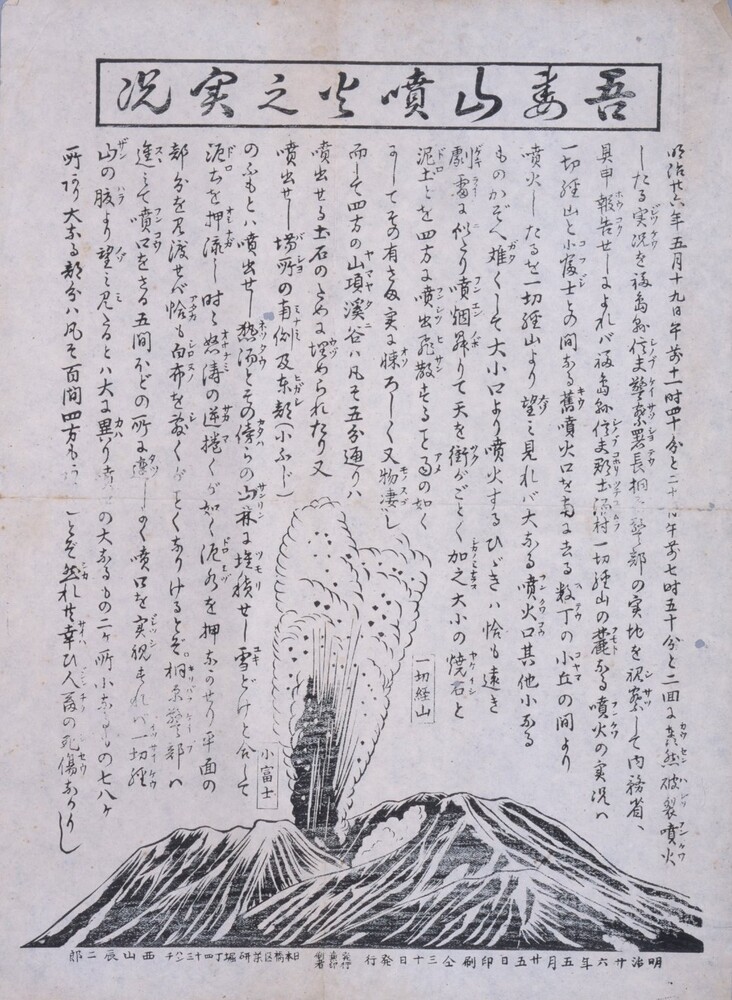 吾妻山噴火之実况
明治廿六年五月十九日午前十一時四十分と二十日午前七时五十分と二回に轟然破裂噴火
したる実况を福島縣信夫警察署長桐原警部の実地を視察して内務省へ
具申報告せしによれバ福島縣信夫郡土湯村一切経山の麓なる噴火の実况ハ
一切経山と小富士との間なる舊噴火口を南に去る数丁の小丘の間より
噴火したるを一切経山より望ミ見れバ大なる噴火口其他小なる
ものかぞへ難くして大小口より噴火するひゞきハ恰も遠き
劇雷に似たり噴烟昇りて天を衝がごとく加之大小の焼石と
泥土とを四方に噴出飛散することあめの如く
にしてその有さま実に怖ろしく又物凄し
而して四方の山頂溪谷ハ凡そ五分通りハ
噴出せる土石のために埋められたり又
噴出せし場所の南側及東部(小ふじ)
のふもとハ噴出せし熱湯とその傍らの山林に堆積せし雪どけと合して
泥土を押流し时に怒濤の逆捲くが如く泥水を押ながせり平面の
部分を見渡せバ恰も白布を敷くがごとくなりけるとぞ桐原警部ハ
進ミて噴口をさる五間ほどの所に達し噴口を実視すれバ一切経
山の腹より望ミ見たるとハ大に異り噴口の大なるもの二ケ所小なるもの七八ケ
所あり大なる部分ハ凡そ百間四方も ことぞ然れ共幸ひ人畜の死傷なかりし
一切経山
小富士
明治廿六年五月廿五日印刷仝三十日発行 日本橋区薬研堀丁四十三バンチ 西山辰二郎